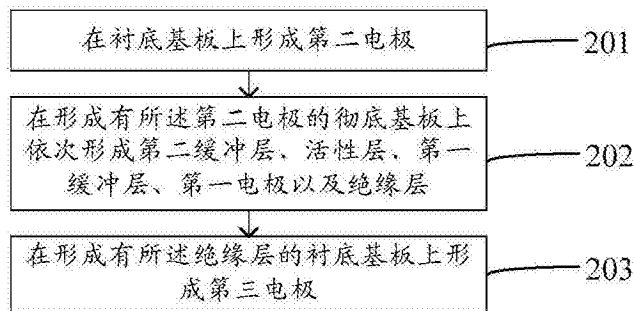 在衬底基板上形成第二电极
201
在形成有所述第二电极的彻底基板上
依次形成第二缓冲层、活性层、第一
缓冲层、第一电极以及绝缘层
202
在形成有所述绝缘层的衬底基板上形
成第三电极
203